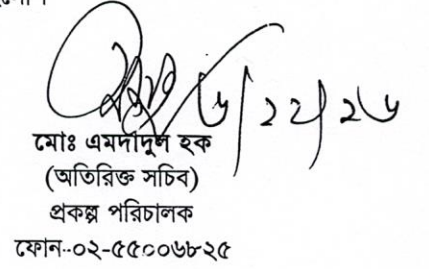 ৬/১২/২৬
মোঃ এমদাদুল হক
(অতিরিক্ত সচিব)
প্রকল্প পরিচালক
ফোন-০২-৫৫০০৬৮২৫